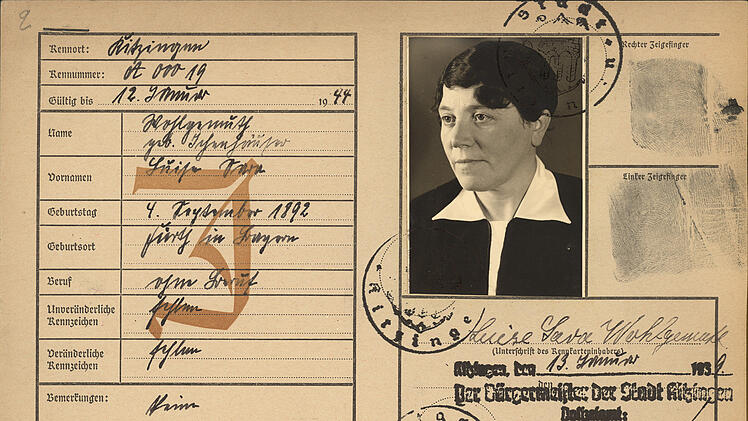 Kennort: Kitzingen
Kennummer: A 00019
Gültig bis 12. Januar 1944
Name Wohlgemuth
geb. Ichenhäuser
Vornamen Luise Sara
J
Geburtstag 4. September 1892
Geburtsort Fürth in Bayern
Beruf ohne Beruf
Unveränderliche Kennzeichen fehlen
Veränderliche Kennzeichen fehlen
Bemerkungen: Keine
Rechter Zeigefinger
Linker Zeigefinger
Kitzingen
Luise Sara Wohlgemuth
(Unterschrift des Kennkarteninhabers)
Kitzingen, den 13. Januar 1939
Der Bürgermeister der Stadt Kitzingen